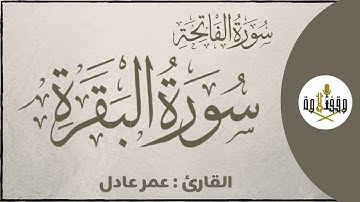 سُورَةُ الْفَاتِحَةِ
سُورَةُ الْبَقَرَةِ
القارئ : عمر عادل